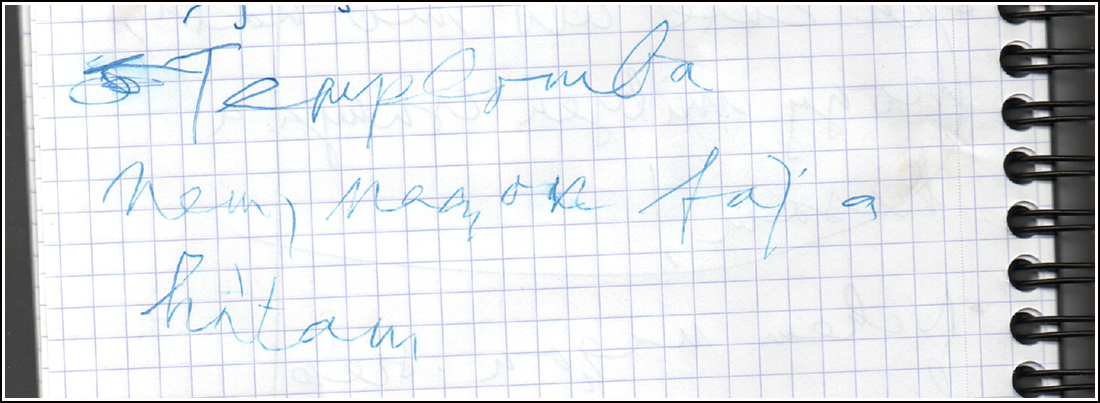 Templomba
nem fáj a
hátam